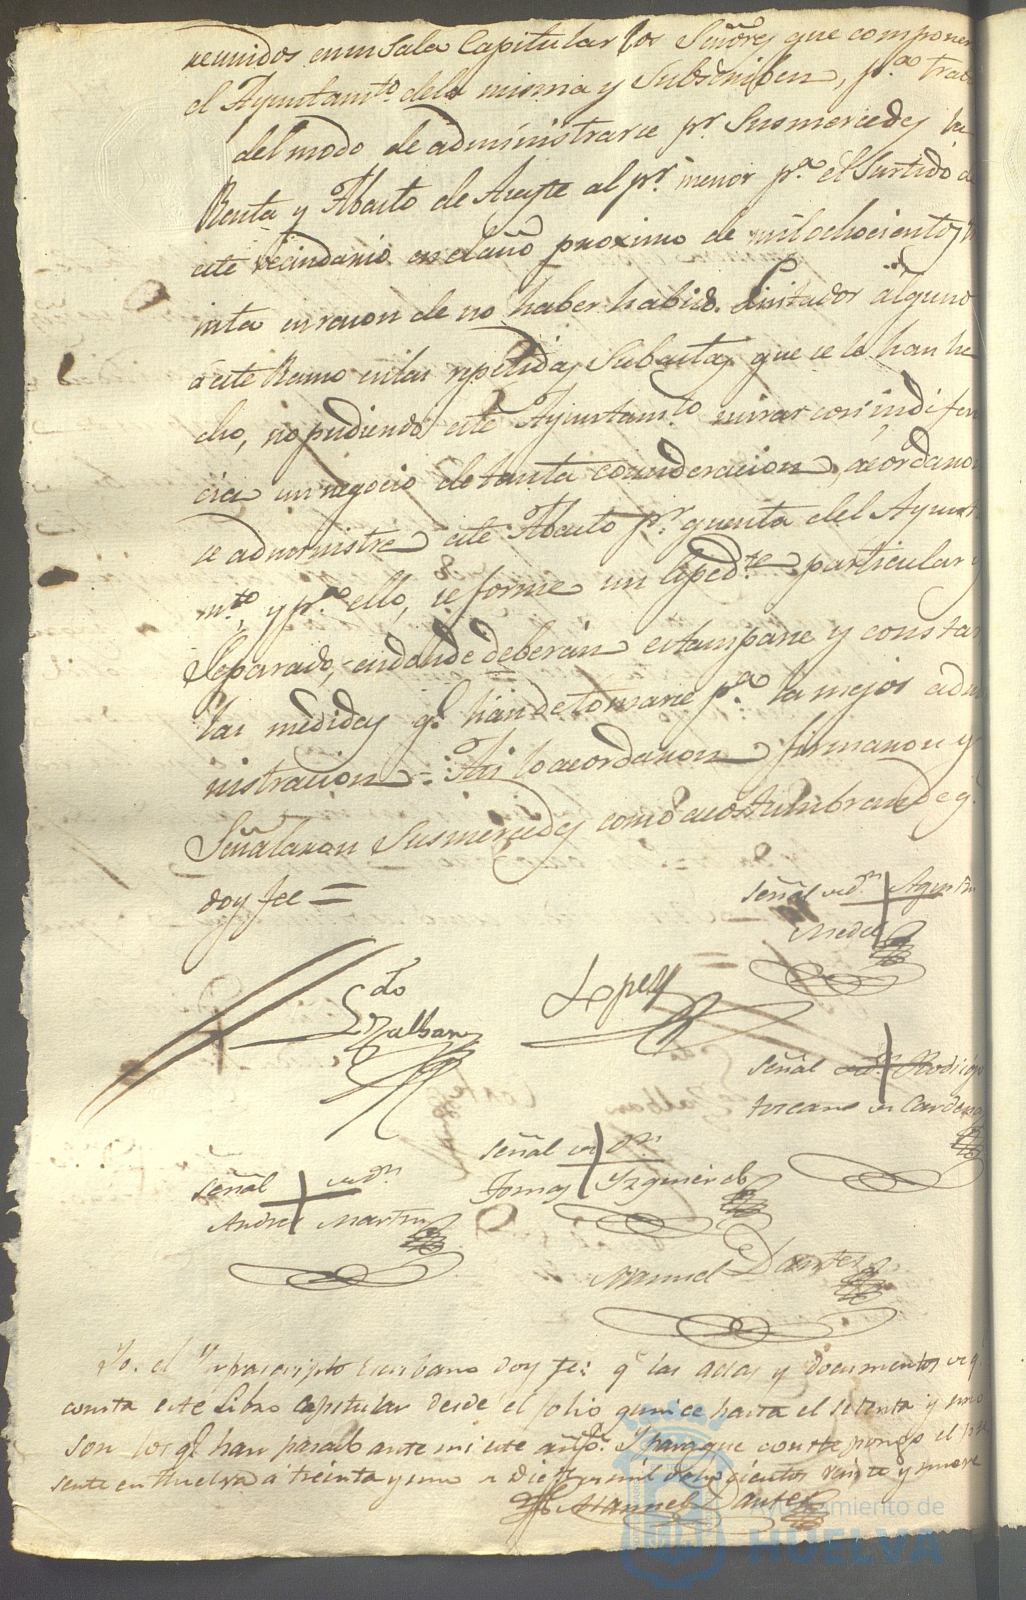 reunidos en su Sala Capitular los Señores que componen
el Ayuntamto. dela misma y Subscriben, pa. trat
del modo de administrarce pr. Susmercedes la
Renta y Abasto de Aceyte al pr. menor pa. el Surtido de
este vecindario en el año proximo de mil ochocientos
inta en racon de no haber habido Licitador alguno
a este Ramo en las repetidas Subastas que se le han he
cho, no pudiendo este Ayuntamto. mirar con indiferen
cia un negocio de tanta consideracion, acordaron
se administre este Abasto pr. quenta del Ayunta
mto. y pa. ello, se forme un Expedte. particular y
Separado, en donde deberán estamparse y constar
las medidas q. han de tomarse pa. la mejor admi
nistracion = Asi lo acordaron firmaron y
Señalaron Susmercedes como acostumbran de q.
doy fee =
Señal de Dn. Agustin
Ldo. Zalban
Lopez
Señal de Dn. Rodrigo
toscano de Cardenas
Señal de Dn.
Andres Martin
Señal de Dn.
Tomas Yzquierdo
Manuel Dantes
Yo el Ynfrascripto Escribano doy fe: q. las actas y documentos de q.
consta este Libro Capitular desde el folio quince hasta el setenta y uno
son los q. han pasado ante mi este año. Y para que conste pongo el pre
sente en Huelva a treinta y uno de Dizre. de mil ochocientos veinte y nueve
Manuel Dantes
Ayuntamiento de
HUELVA